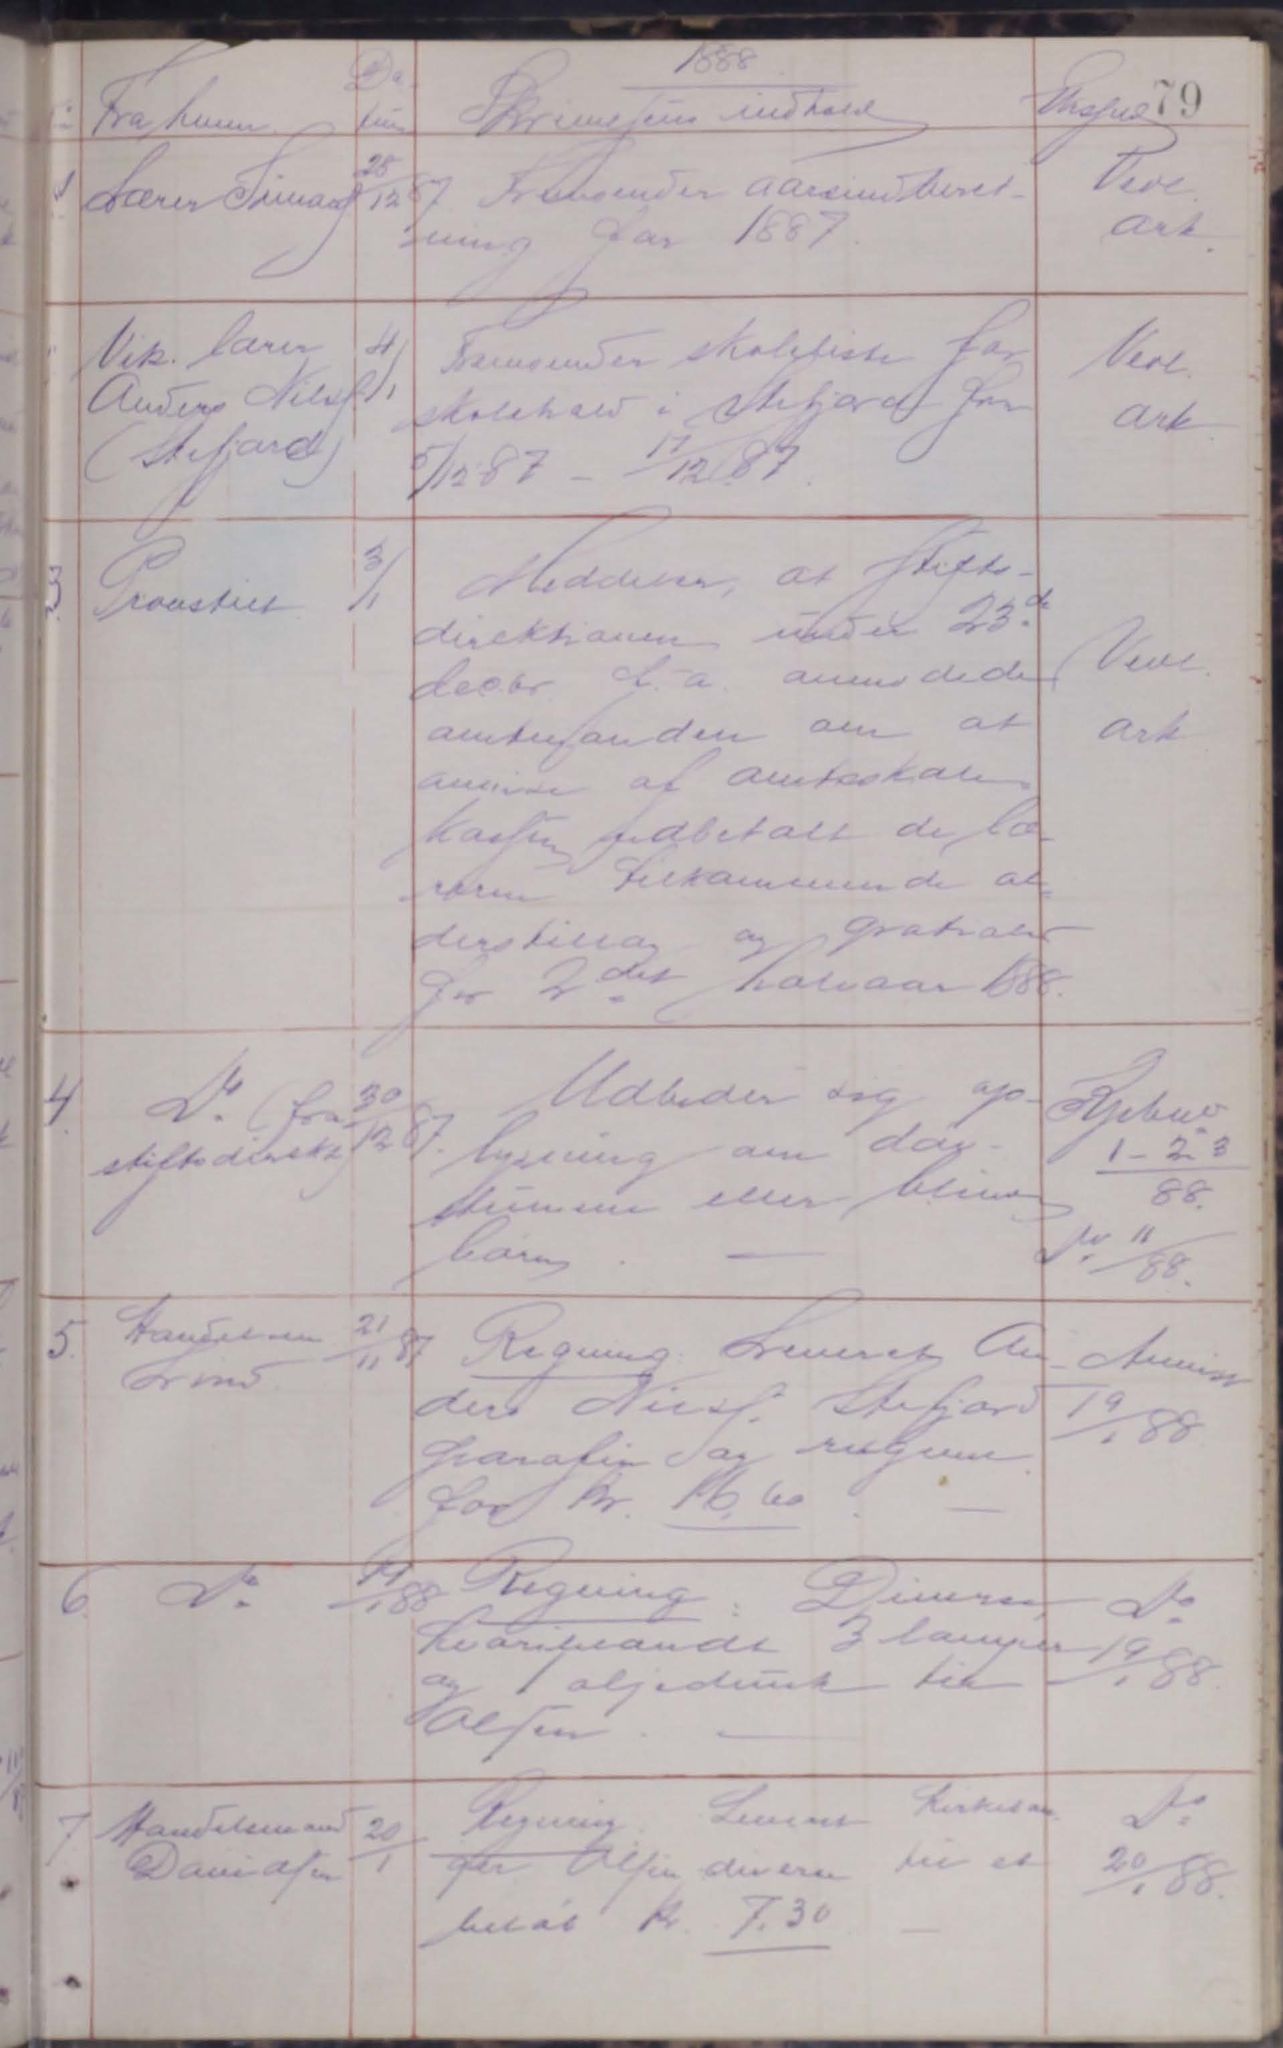 1888
79
Fra hvem
Da-
tum
Skrivelsens indhold
Lærer Simonsen
28/12 87
Fremsender aarsindberet-
ning for 1887.
Vedl.
ark.
Vik. lærer
Anders Nilsen
(Stefjord)
4/1
Fremsender skoleliste for
skolehold i Stefjord fra
5/12 87 – 17/12 87.
Vedl.
ark
3
Provstiet
3/1
Meddeler, at Stifts-
direktionen under 23de
decbr f. a. anmodede
amtmanden om at
anvise af amtsskole-
kassen udbetalt de læ-
rerne tilkommende al-
derstillæg og gratialer
for 2det halvaar 1888.
Vedl.
ark
4.
Do (fra
stiftsdirekt.)
30/12 87.
Udbeder sig op-
lysning om døv-
stumme eller blinde
børn. —
Kopibog
1-2-3
88.
No 11/88.
5.
Handelsm.
Lind
21/11 87
Regning. Leveret An-
ders Nilsf. Stefjord
parafin og
for kr. 16,60. —
Anvist
19/1 88
6.
Do
14/1 88
Regning: Diverse,
hvoriblandt 3 lamper
og 1 oljedunk til
Olsen. —
Do
19/1 88.
7
Handelsmand
Davidsen
20/1
Regning. Leveret kirkesan-
ger Olsen diverse til et
beløb kr. 7.30 —
Do
20/1 88.